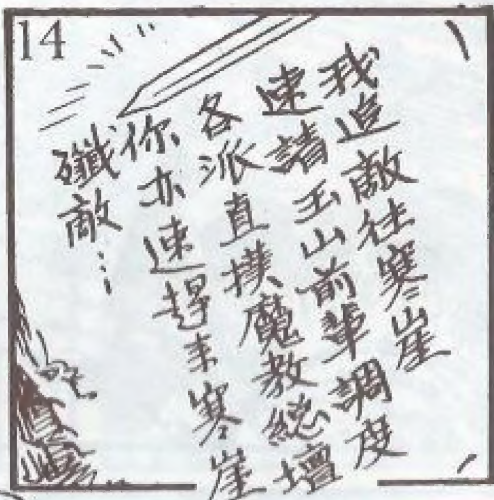 14
我追敵往寒崖
速請玉山前輩調度
各派直撲魔教総壇
你亦速趕来寒崖
殲敵…